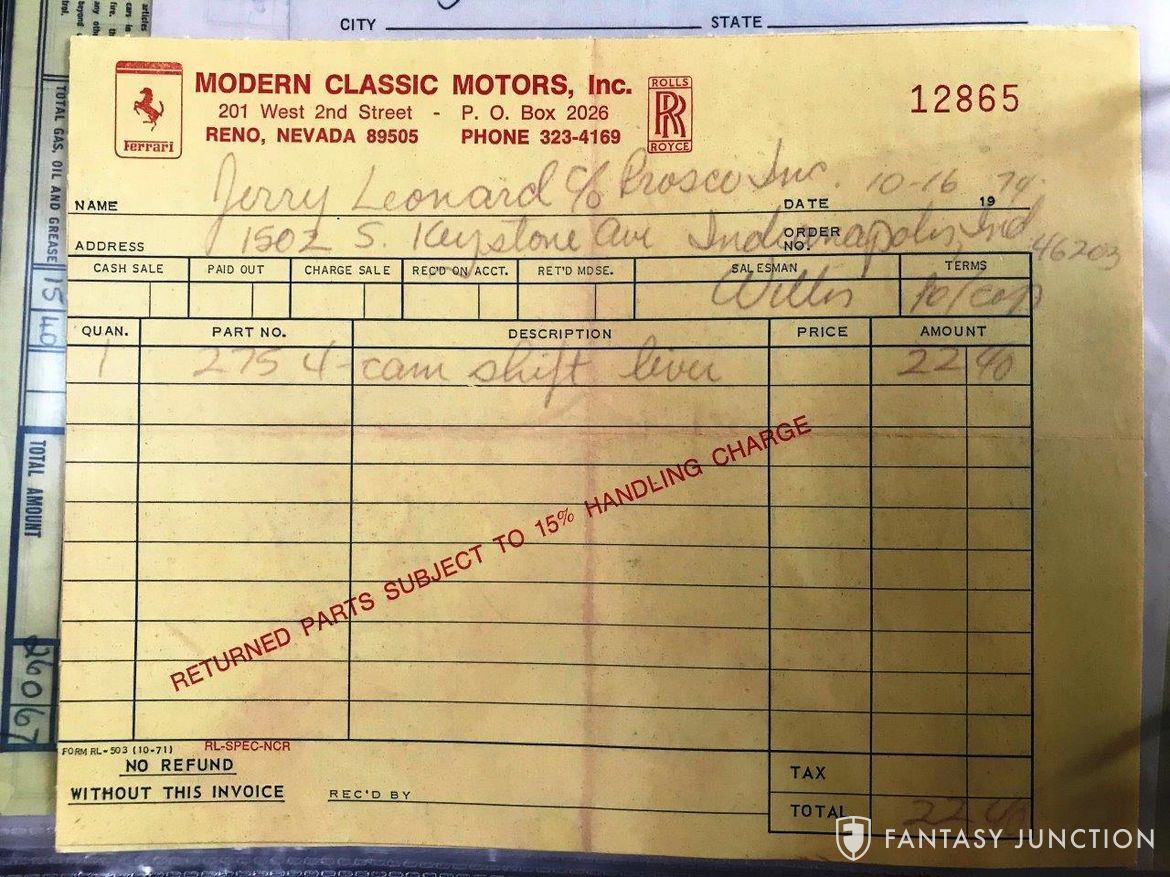 CITY STATE
MODERN CLASSIC MOTORS, Inc.
201 West 2nd Street - P. O. Box 2026
RENO, NEVADA 89505 PHONE 323-4169
Ferrari
ROLLS
RR
ROYCE
12865
NAME Jerry Leonard c/o Prosco Inc. DATE 10-16 1974
ADDRESS 1502 S. Keystone Ave Indianapolis, Ind 46203
ORDER NO.
CASH SALE PAID OUT CHARGE SALE REC'D ON ACCT. RET'D MDSE. SALESMAN TERMS
Willis
QUAN. PART NO. DESCRIPTION PRICE AMOUNT
1 275 4-cam shift lever 22 40
RETURNED PARTS SUBJECT TO 15% HANDLING CHARGE
FORM RL-503 (10-71) RL-SPEC-NCR
NO REFUND
WITHOUT THIS INVOICE REC'D BY
TAX
TOTAL 22 40
TOTAL GAS, OIL AND GREASE 15 40
TOTAL AMOUNT 260 67
FANTASY JUNCTION